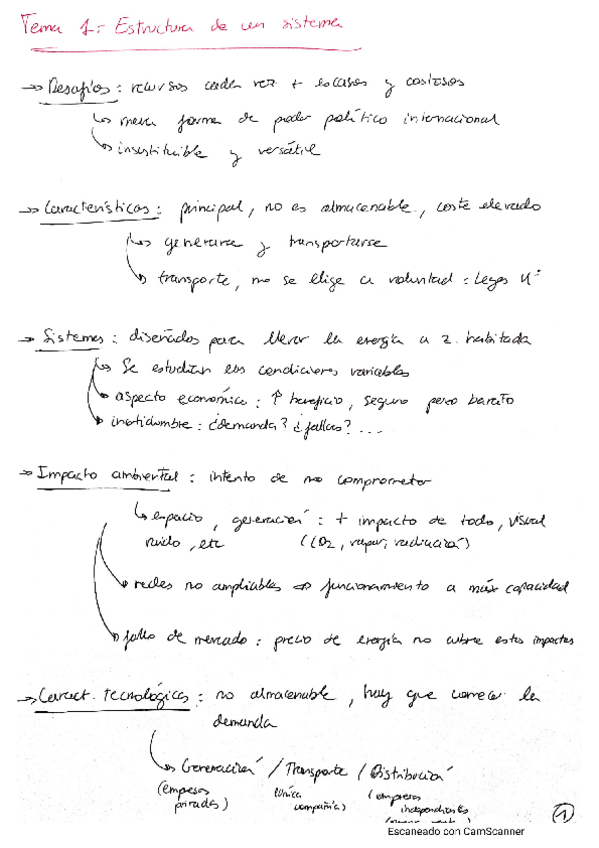 Tema 1: Estructura de un sistema
→ Desafíos: recursos cada vez + escasos y costosos
↳ nueva forma de poder político internacional
↳ insustituible y versátil
→ Características: principal, no es almacenable, coste elevado
↳ generarse y transportarse
↳ transporte, no se elige a voluntad: Leyes K
→ Sistemas: diseñados para llevar la energía a z. habitada
↳ Se estudian en condiciones variables
↳ aspecto económico: ↑ beneficio, seguro pero barato
↳ incertidumbre: ¿demanda? ¿fallos? ...
→ Impacto ambiental: intento de no comprometer
↳ espacio, generación: + impacto de todo, visual
ruido, etc (CO2, vapor, radiación)
↳ redes no ampliables ⇒ funcionamiento a máx capacidad
↳ fallo de mercado: precio de energía no cubre estos impactos
→ Caract. tecnológicas: no almacenable, hay que conocer la
demanda
↳ Generación / Transporte / Distribución
(empresas (única (empresas
privadas) compañía) independientes
1
Escaneado con CamScanner